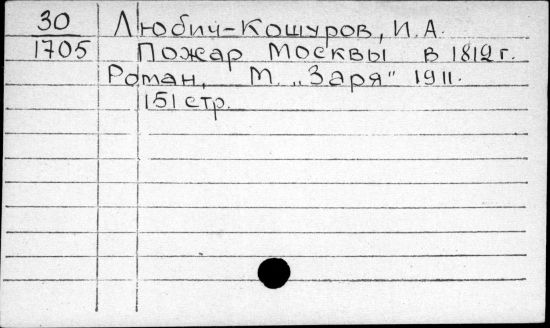 30 Любич-Кошуров, И.А.
1705 Пожар Москвы в 1812 г.
Роман, М. „Заря" 1911.
151 стр.